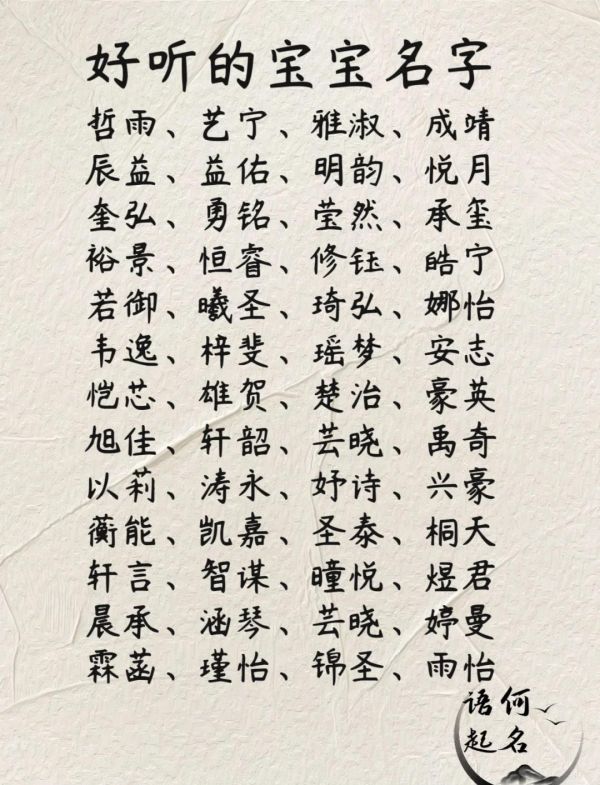 好听的宝宝名字
哲雨、艺宁、雅淑、成靖
辰益、益佑、明韵、悦月
奎弘、勇铭、莹然、承玺
裕景、恒睿、修钰、皓宁
若御、曦圣、琦弘、娜怡
韦逸、梓斐、瑶梦、安志
恺芯、雄贺、楚治、豪英
旭佳、轩韶、芸晓、禹奇
以莉、涛永、妤诗、兴豪
蘅能、凯嘉、圣泰、桐天
轩言、智谋、曈悦、煜君
晨承、涵琴、芸晓、婷曼
霖菡、瑾怡、锦圣、雨怡
语何
起名